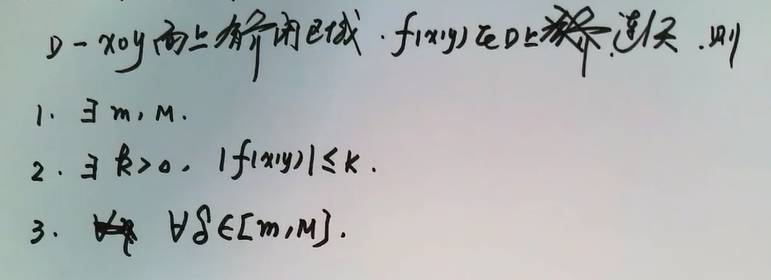 D－xoy面上有界闭区域.f(x,y)在D上连续.则
1. ∃ m, M.
2. ∃ k>0, |f(x,y)|≤k.
3. ∀δ∈[m,M].